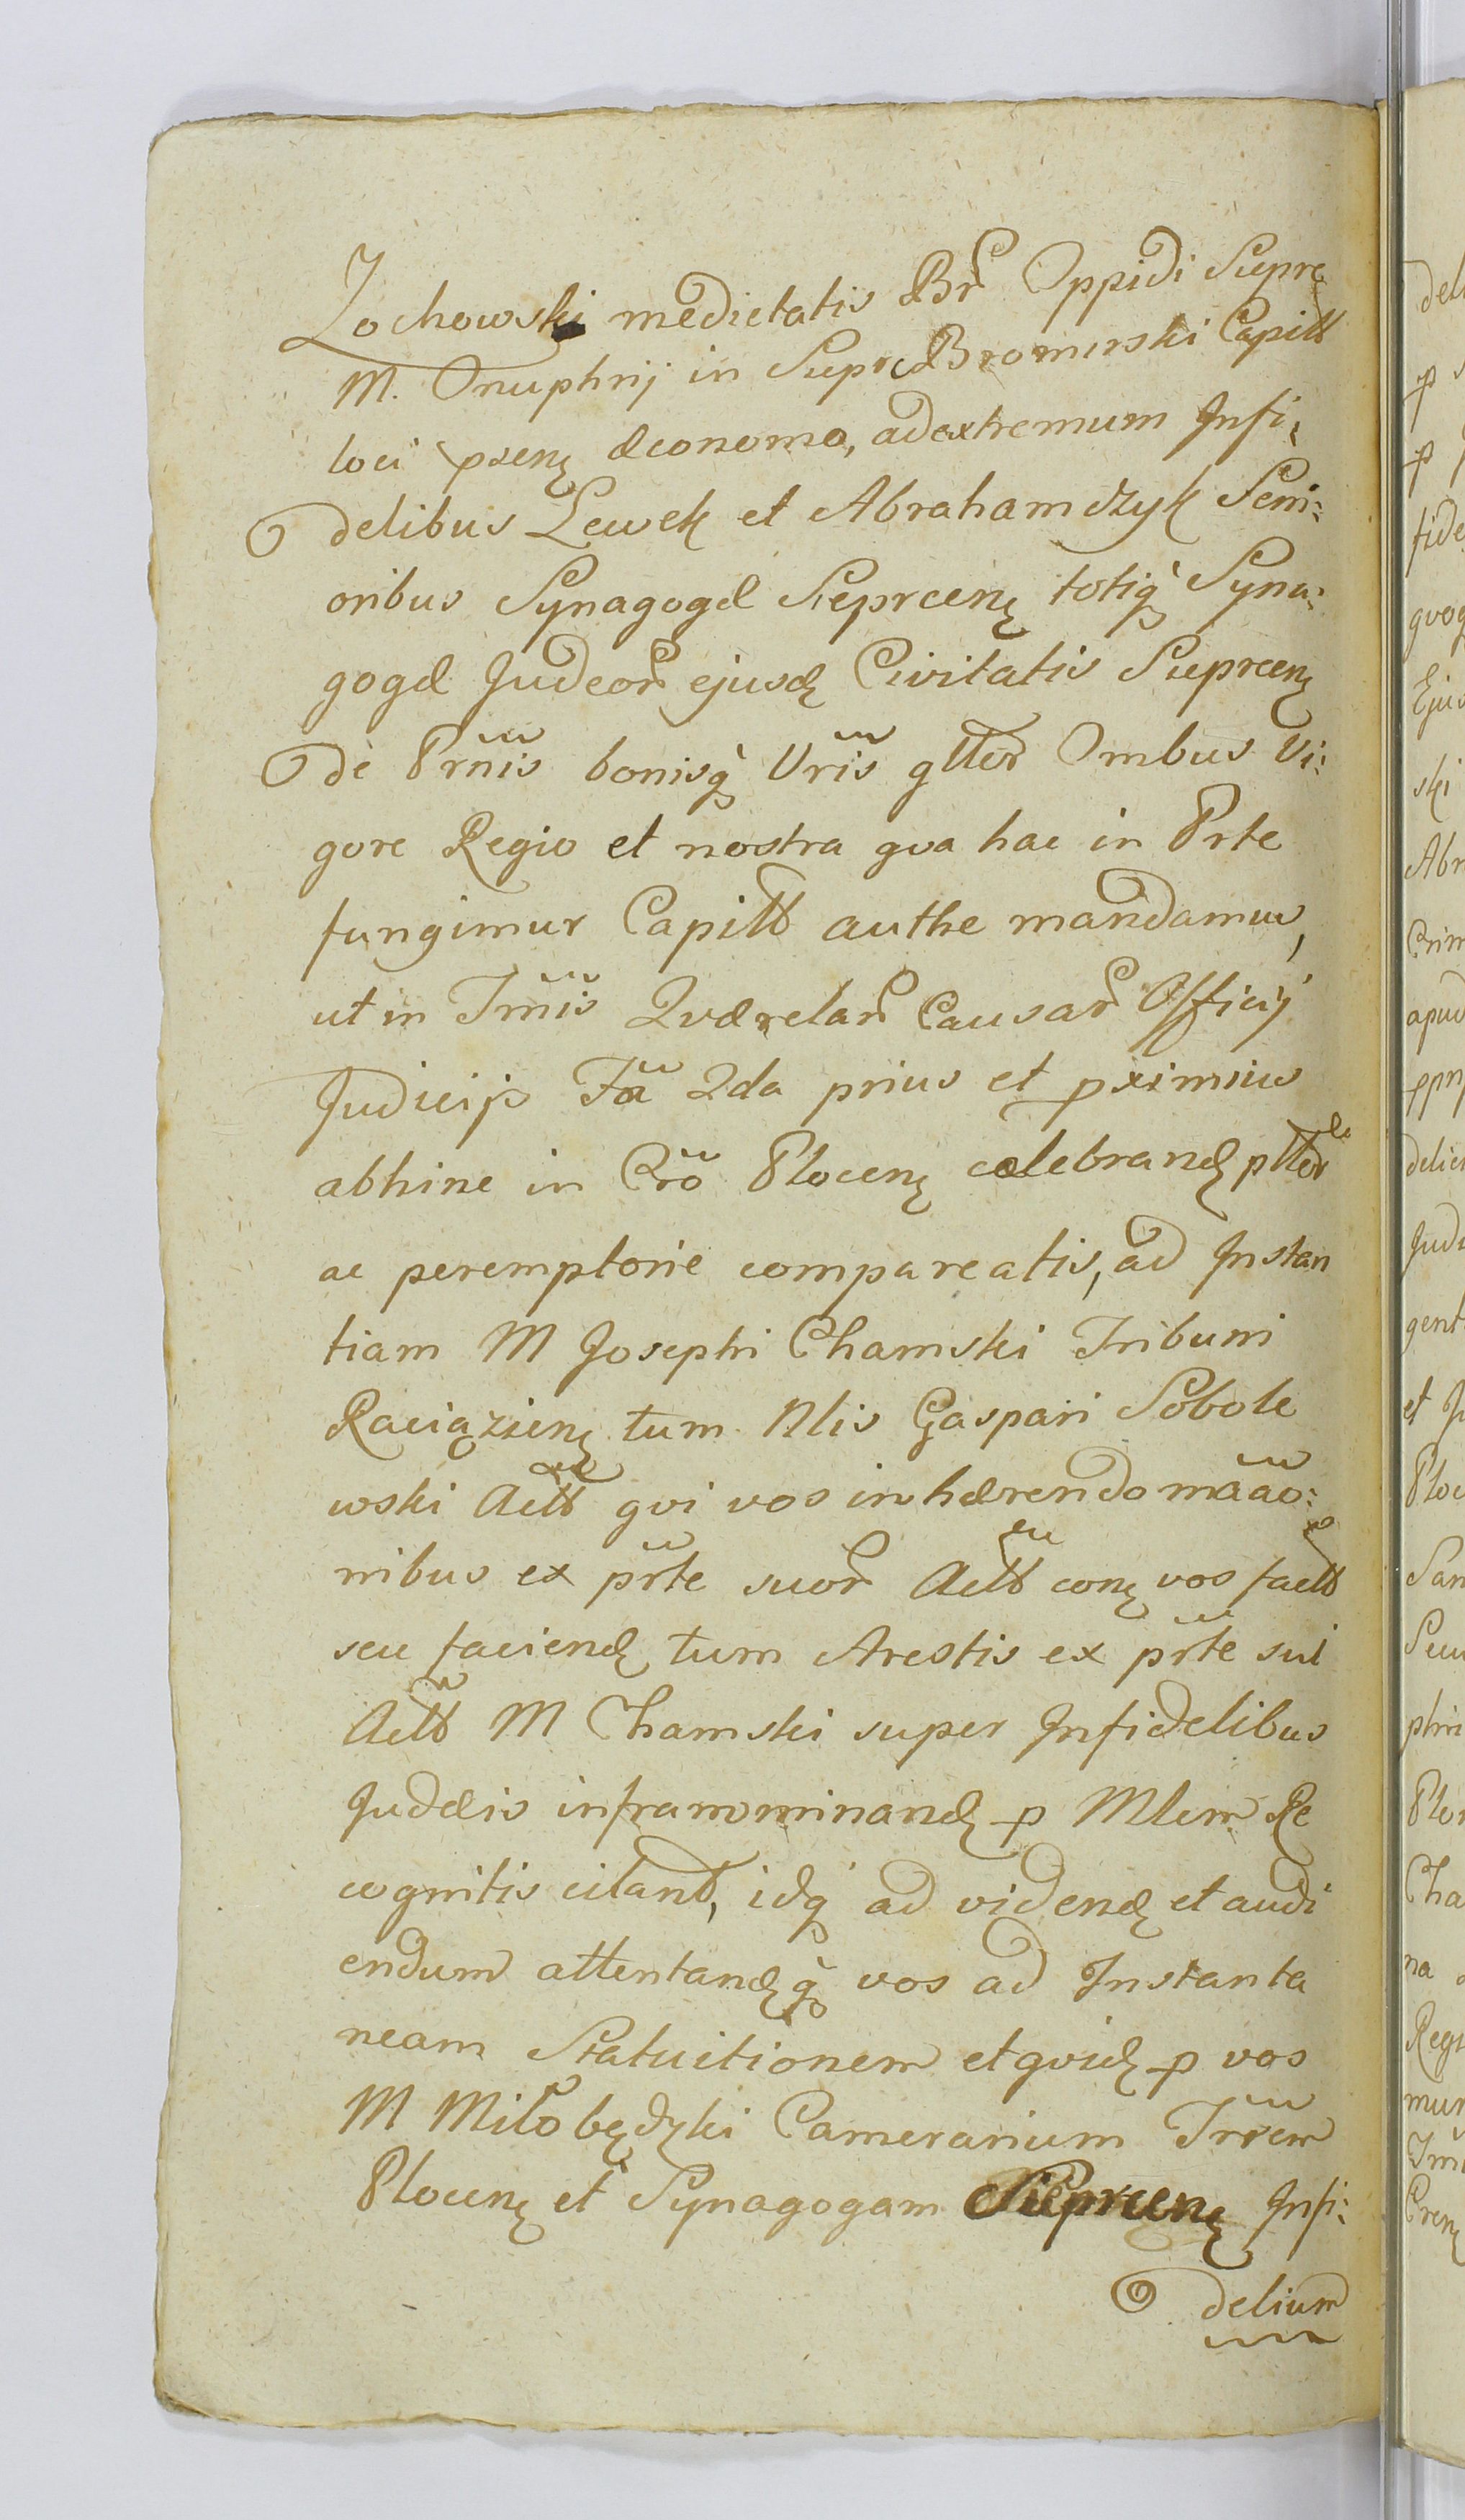 Zochowski medietatis Br Oppidi Sieprc
M. Onuphrij in Sieprc Bromirski Capitt
loci prsenę Æconomo, ad extremum Infi:
delibus Lewek et Abrahamczyk Seni:
oribus Synagogæ Sieprcenę totiq̀ Syna:
gogæ Judeor ejusdę Civitatis Sieprcenę
dè Prñis bonisq̀ Vrĩs gtter Ombus Vi:
gore Regio et nostra qva hac in Prte
fungimur Capitt authe mandamus,
ut in Tmĩs Qværelar Causar Officij
Judicijs Fã 2da prius et pximius
abhinc in Crõ Plocenę cælebrandę ptter
ac peremptorie compareatis, ad Instan
tiam M Josephi Chamski Tribuni
Raciązienę tum Nlis Gaspari Sobole
wski Actt qvi vos inhærendo mãao:
nibus ex prte suor Actt conę vos factt
seu faciendę tum Arestis ex prte sui
Actt M Chamski super Infidelibus
Judæis infranominandę p Mlem Re
cognitis citant, idq̀ ad videndę et audi
endum attentandęq̀ vos ad Instanta
neam Statuitionem et qvidę p vos
M Miłobędzki Camerarium Trrem
Plocenę et Synagogam Sieprcenę Infi:
delium